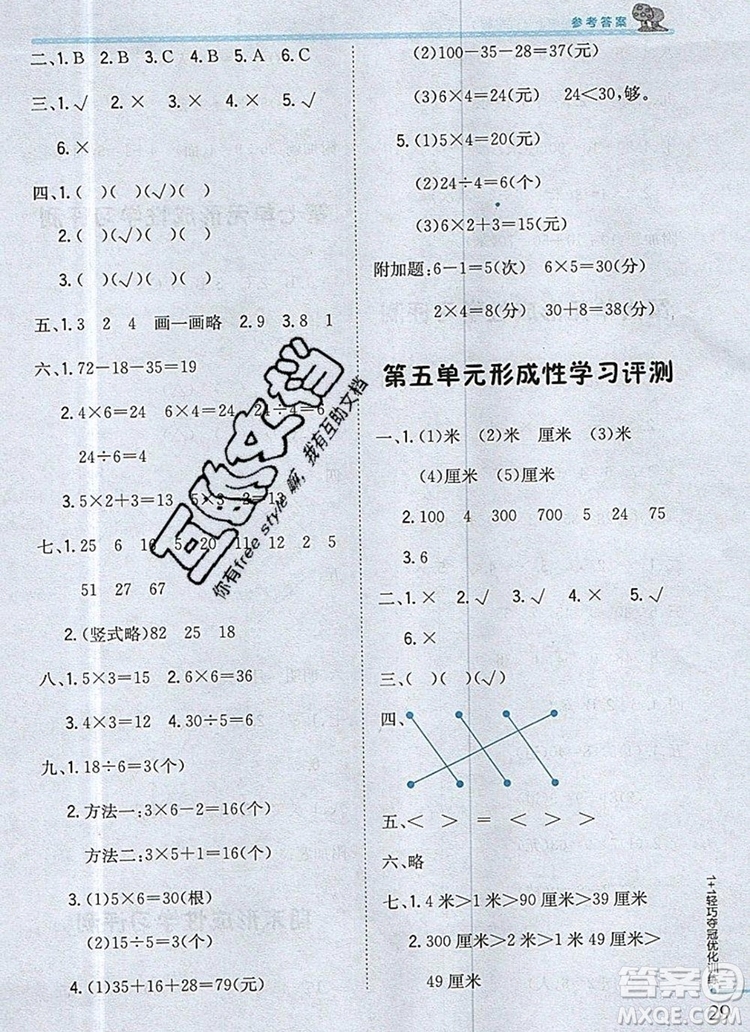 参考答案
二、1.B 2.B 3.C 4.B 5.A 6.C
三、1.√ 2.× 3.× 4.× 5.√
6.×
四、1.( )( )(√)( )
2.( )(√)( )( )
3.( )(√)( )( )
五、1.3 2 4 画一画略 2.9 3.8 1
六、1.72-18-35=19
2.4×6=24 6×4=24 24÷4=6
24÷6=4
3.5×2+3=13 5×3-2=13
七、1.25 6 16 20 12 2 5
51 27 67
2.(竖式略)82 25 18
八、1.5×3=15 2.6×6=36
3.4×3=12 4.30÷5=6
九、1.18÷6=3(个)
2.方法一:3×6-2=16(个)
方法二:3×5+1=16(个)
3.(1)5×6=30(根)
(2)15÷5=3(个)
4.(1)35+16+28=79(元)
(2)100-35-28=37(元)
(3)6×4=24(元) 24<30,够。
5.(1)5×4=20(元)
(2)24÷4=6(元)
(3)6×2+3=15(元)
附加题:6-1=5(次) 6×5=30(分)
2×4=8(分) 30+8=38(分)
第五单元形成性学习评测
一、1.(1)米 (2)米 厘米 (3)米
(4)厘米 (5)厘米
2.100 4 300 700 5 24 75
3.6
二、1.× 2.√ 3.√ 4.× 5.√
6.×
三、( )( )(√)( )
四、
五、< > = < > >
六、略
七、1.4米>1米>90厘米>9厘米
2.300厘米>2米>1米>50厘米>
49厘米
1+1轻巧夺冠优化训练
29
互助文档
你有free style嘛,我有互助文档
答案圈
MXQE.COM